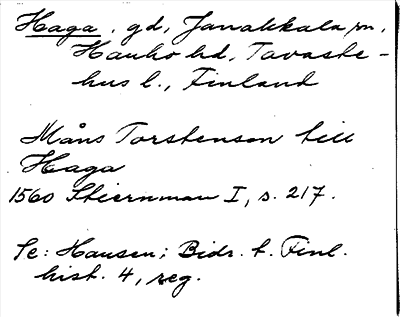 Haga, gd, Janakkala sn,
Hauho hd, Tavaste-
hus l., Finland
Måns Torstensson till
Haga
1560 Stiernman I, s. 217.
Se: Hausen; Bidr. t. Finl.
hist. 4, reg.